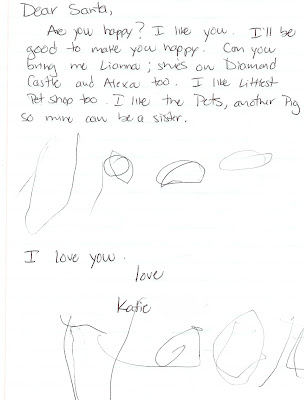 Dear Santa,
Are you happy? I like you. I'll be
good to make you happy. Can you
bring me Lianna; she's on Diamond
Castle and Alexa too. I like Littlest
Pet shop too. I like the Pets, another Pig
so mine can be a sister.
I love you.
love
Katie